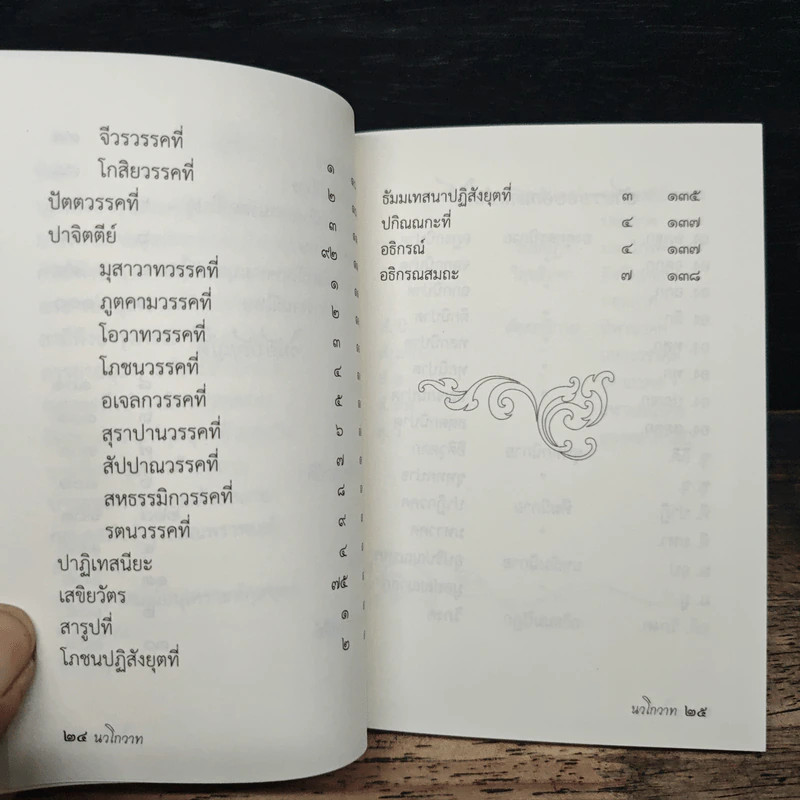 จีวรวรรคที่ ๑
โกสิยวรรคที่ ๒
ปัตตวรรคที่ ๓
ปาจิตตีย์ ๙๒
มุสาวาทวรรคที่ ๑
ภูตคามวรรคที่ ๒
โอวาทวรรคที่ ๓
โภชนวรรคที่ ๔
อเจลกวรรคที่ ๕
สุราปานวรรคที่ ๖
สัปปาณวรรคที่ ๗
สหธรรมิกวรรคที่ ๘
รตนวรรคที่ ๙
ปาฏิเทสนียะ ๔
เสขิยวัตร ๗๕
สารูปที่ ๑
โภชนปฏิสังยุตที่ ๒
๒๔ นวโกวาท
ธัมมเทสนาปฏิสังยุตที่ ๓ ๑๓๕
ปกิณณกะที่ ๔ ๑๓๗
อธิกรณ์ ๔ ๑๓๗
อธิกรณสมถะ ๗ ๑๓๘
นวโกวาท ๒๕